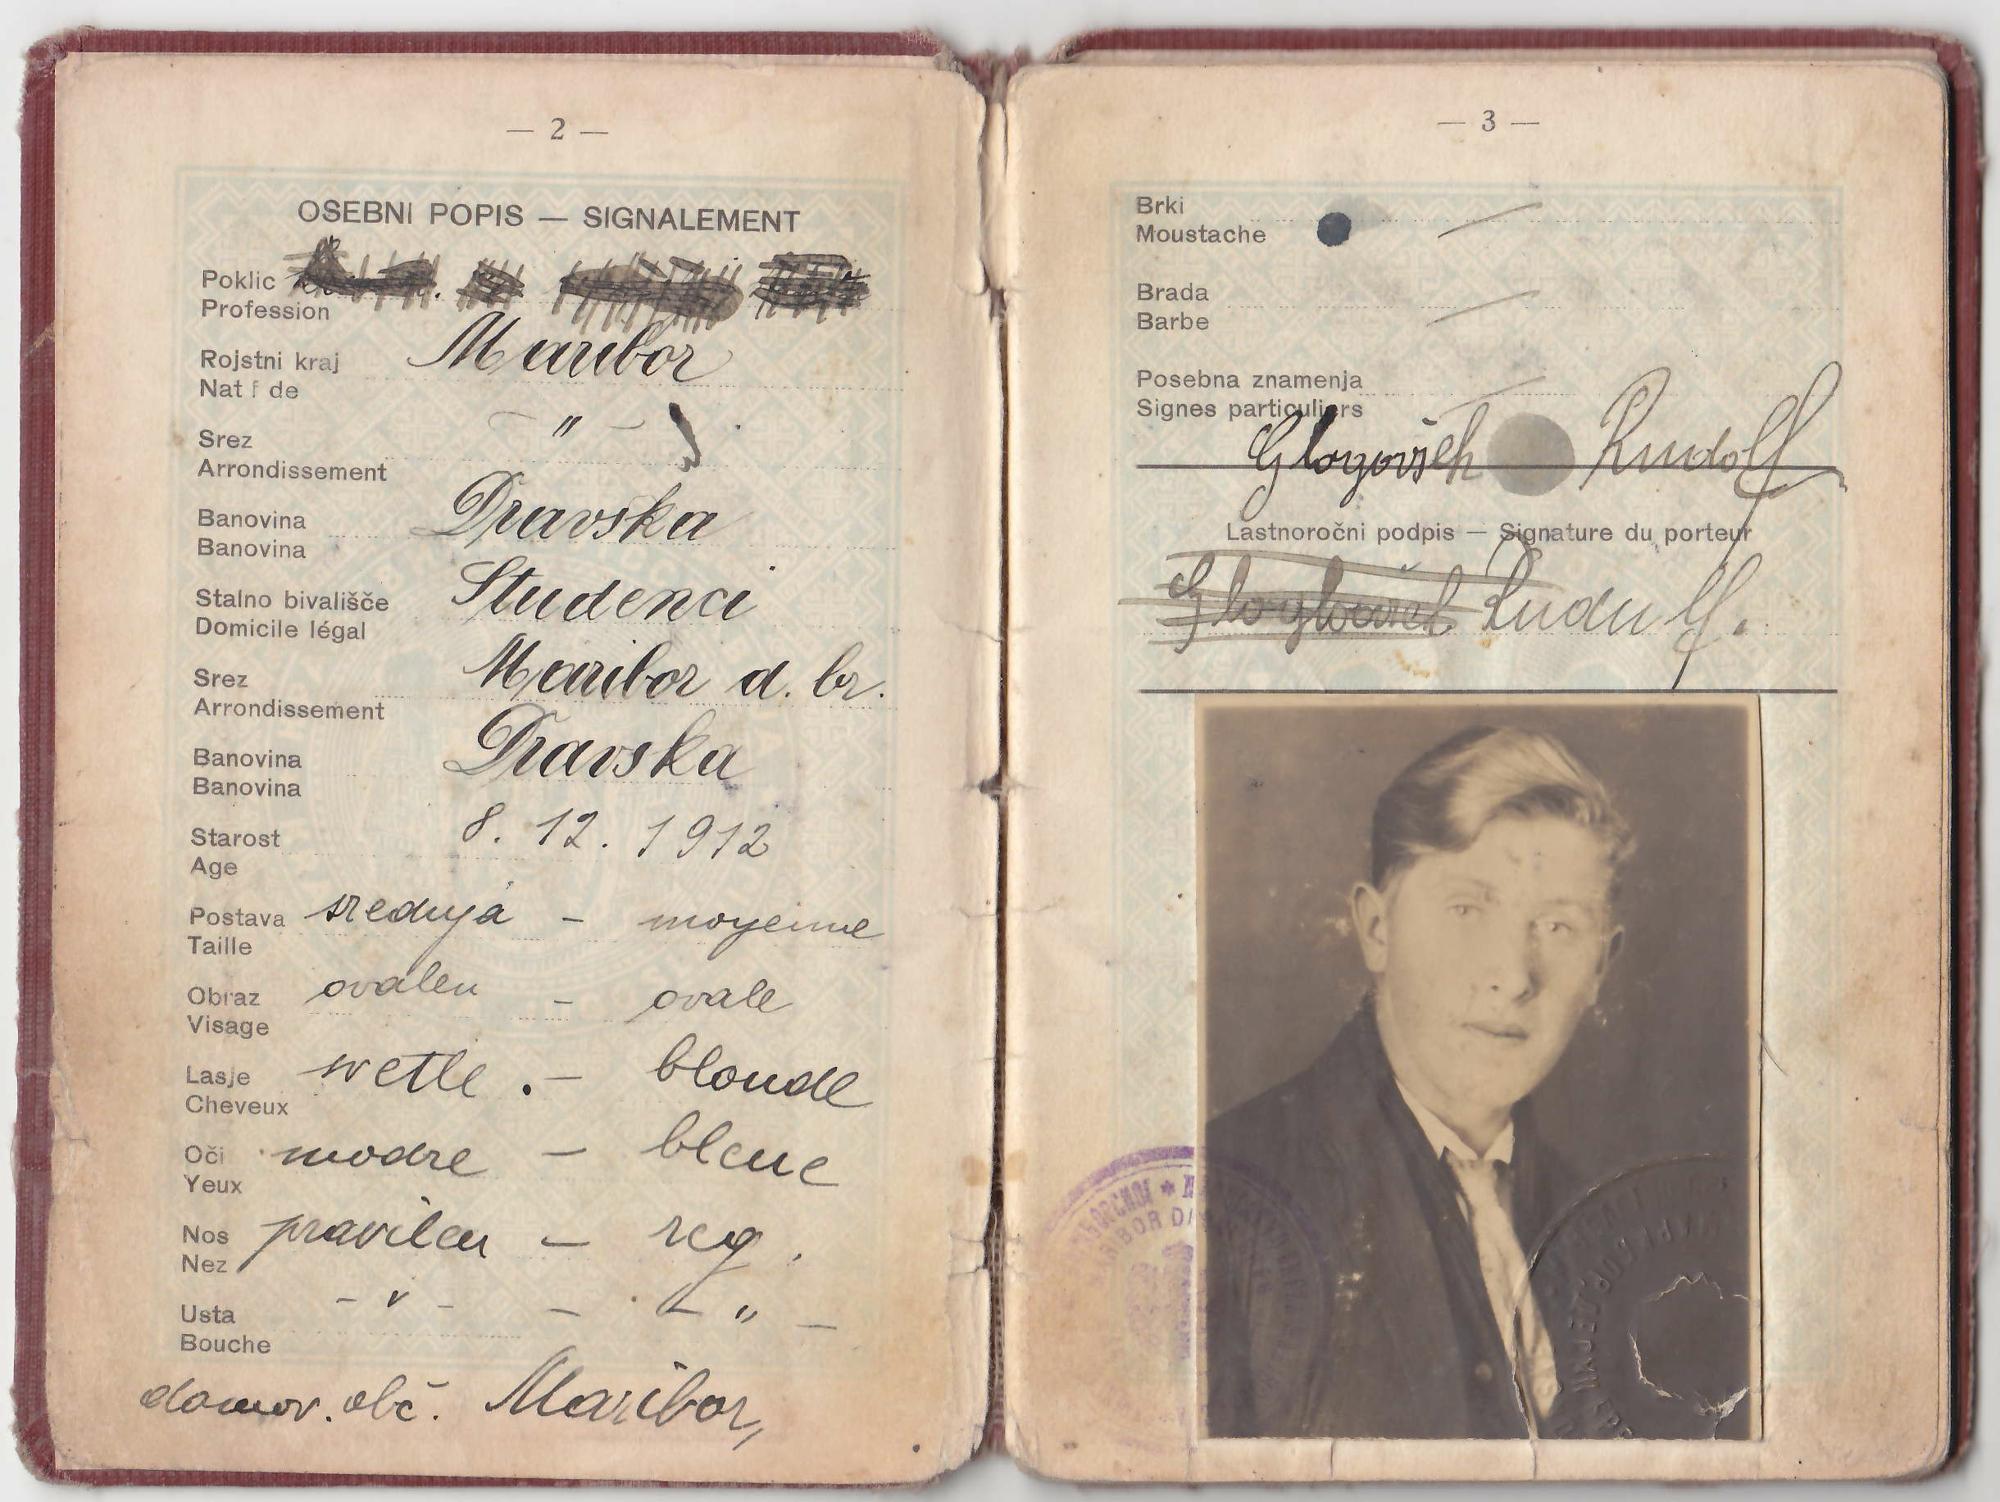 — 2 —
OSEBNI POPIS — SIGNALEMENT
Poklic
Profession
Rojstni kraj Maribor
Nat f de
Srez — " —
Arrondissement
Banovina Dravska
Banovina
Stalno bivališče Studenci
Domicile légal
Srez Maribor d. br.
Arrondissement
Banovina Dravska
Banovina
Starost 8. 12. 1912
Age
Postava srednja — moyenne
Taille
Obraz ovalen — ovale
Visage
Lasje svetle . — blonde
Cheveux
Oči modre — bleue
Yeux
Nos pravilen — reg.
Nez
Usta — " — — — " —
Bouche
domov. obč. Maribor,
— 3 —
Brki —
Moustache
Brada —
Barbe
Posebna znamenja —
Signes particuliers
Glogovšek Rudolf
Lastnoročni podpis — Signature du porteur
Rudolf.